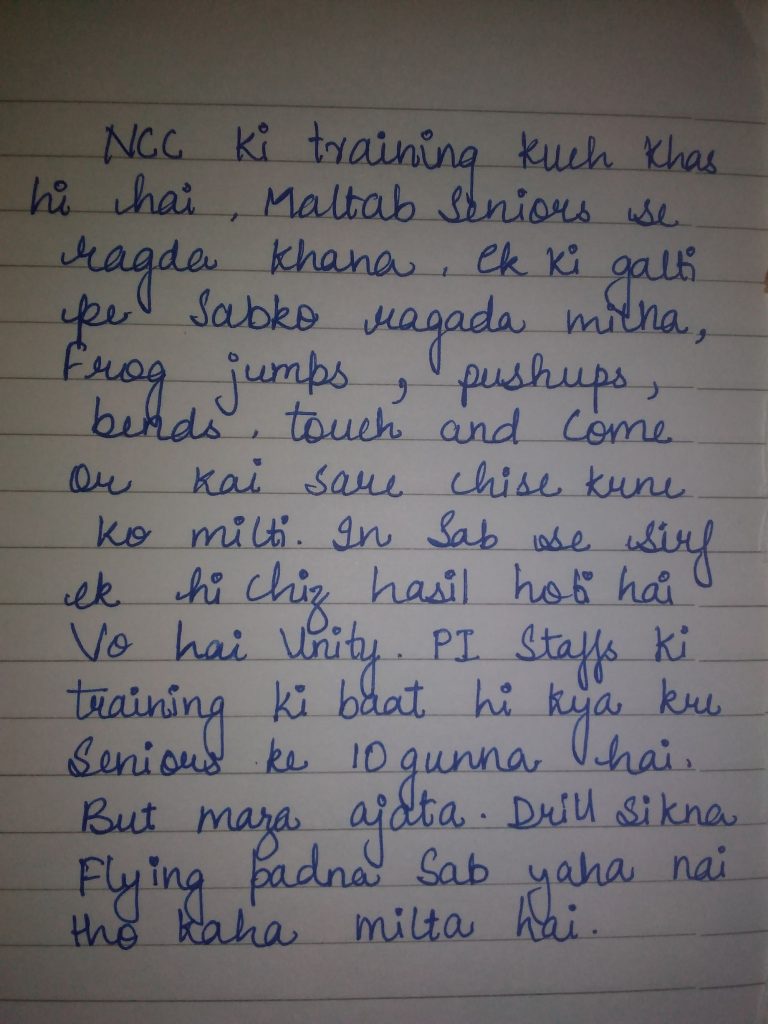 NCC ki training kuch khas
hi hai, Maltab Seniors se
ragda khana, ek ki galti
pe Sabko ragada milna,
Frog jumps, pushups,
bends, touch and Come
or kai sare chise krne
ko milti. In Sab se sirf
ek hi chiz hasil hoti hai
Vo hai Unity. PI Staffs ki
training ki baat hi kya kre
Seniors ke 10 gunna hai.
But maza ajata. Drill Sikna
Flying padna Sab yaha nai
tho kaha milta hai.